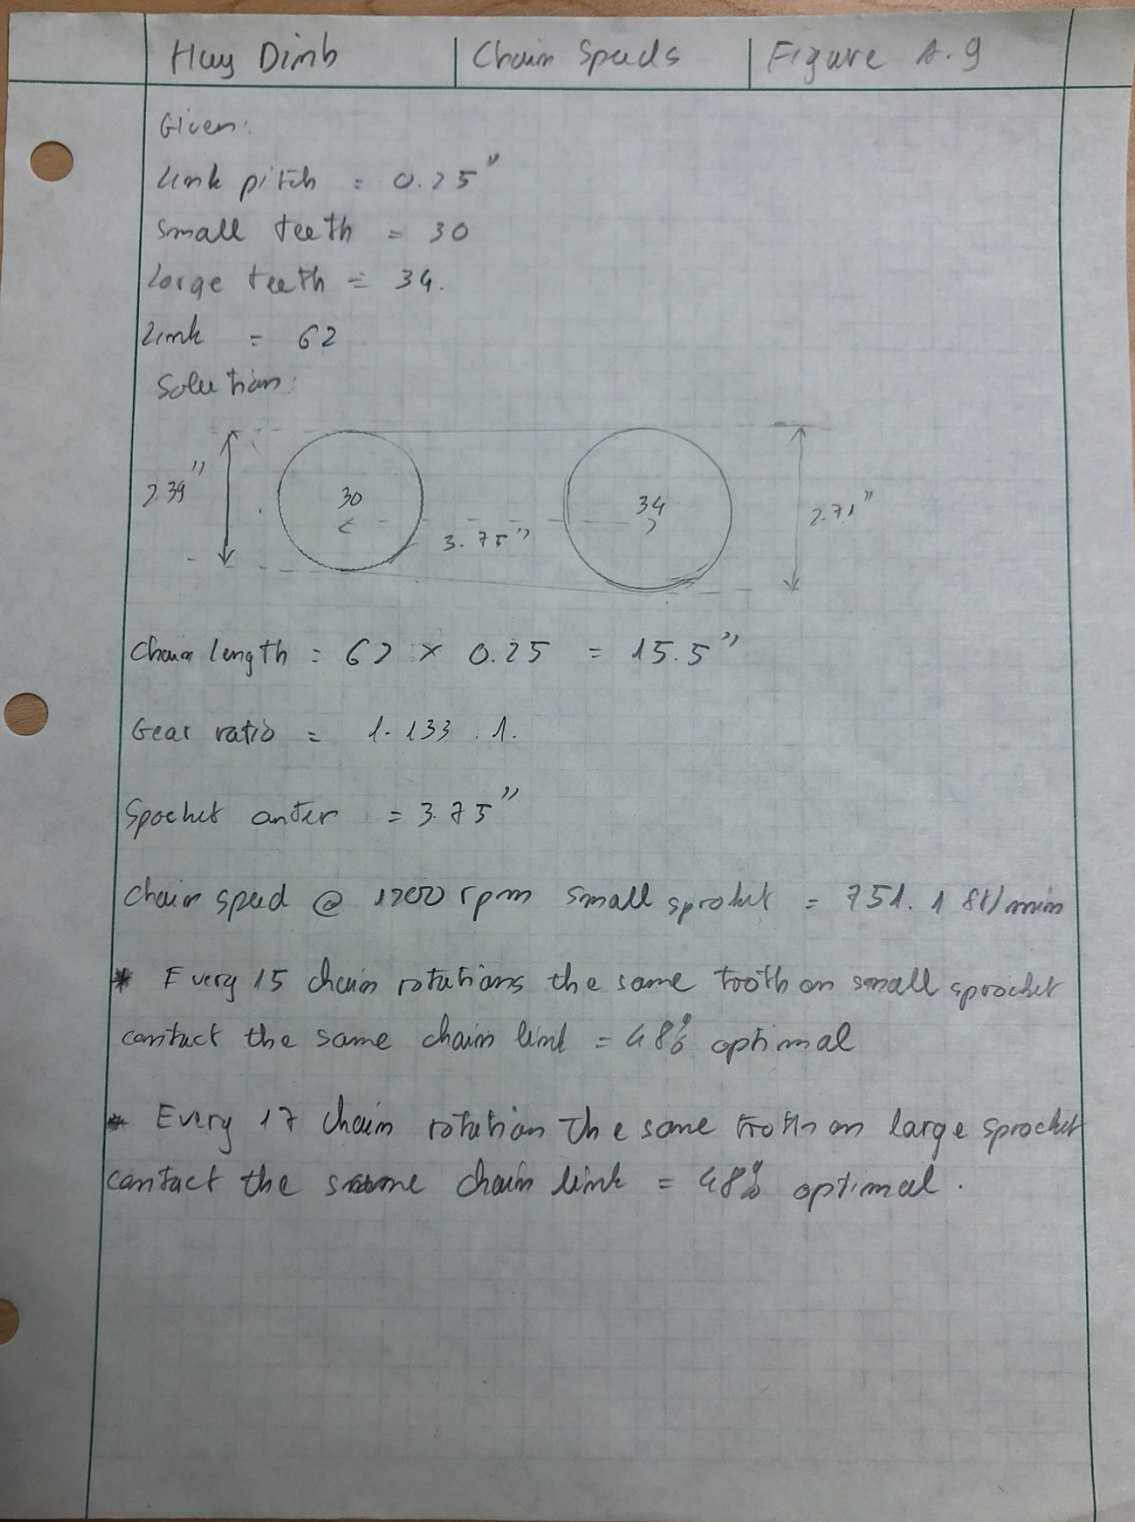 Huy Dinh | Chain Speeds | Figure A.9
Given:
Link pitch = 0.25"
Small teeth = 30
Large teeth = 34.
Link = 62
Solution:
2.39" 30 3.75" 34 2.71"
Chain length = 62 x 0.25 = 15.5"
Gear ratio = 1.133 : 1.
Spocket center = 3.75"
Chain speed @ 1200 rpm small sprocket = 751.1 ft/min
* Every 15 chain rotations the same tooth on small sprocket
contact the same chain link = 48% optimal
* Every 17 chain rotation the same tooth on large sprocket
contact the same chain link = 48% optimal.